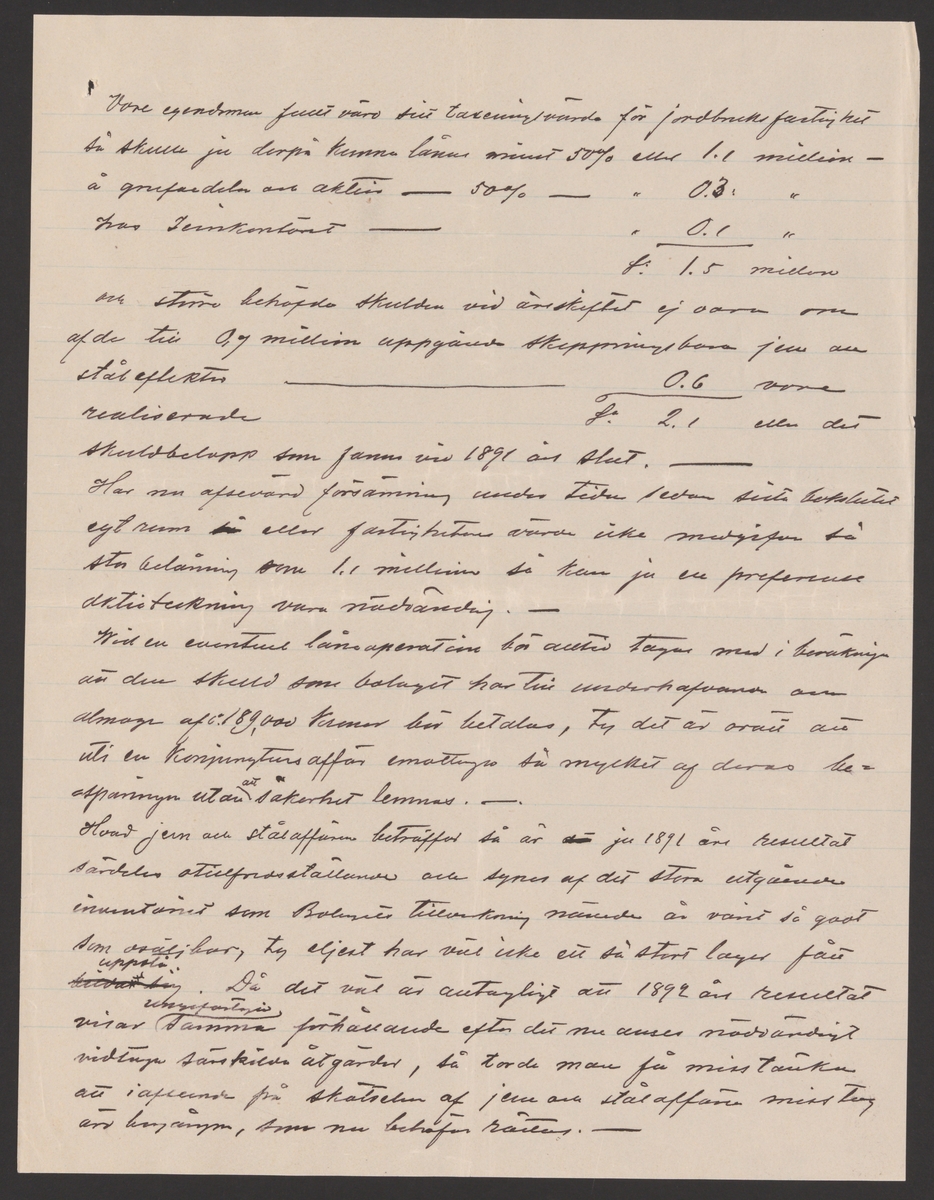 Vore egendomen fullt värd sitt taxeringsvärde för jordbruksfastighet
så skulle ju derpå kunna lånas minst 50% eller 1.1 million —
å grufvedelar och aktier — 50% — " 0.3 "
hos Jernkontoret — " 0.1 "
S:a 1.5 million
och större behöfde skulden vid årsskiftet ej vara om
af de till 0,7 million uppgående skeppningsbara jern och
ståleffekter — 0.6 vore
realiserade S:a 2.1 eller det
skuldbelopp som fanns vid 1891 års slut. —
Har nu afsevärd försämring under tiden sedan sista bokslutet
egt rum eller fastighetens värde icke medgifver så
stor belåning som 1.1 million så kan ju en preferens
aktieteckning vara nödvändig. —
Wid en eventuel låneoperation bör alltid tagas med i beräkning
att den skuld som bolaget har till underhafvande och
almoge af c:a 189,000 kronor bör betalas, ty det är orätt att
uti en konjunktursaffär emottaga så mycket af deras be=
sparingar utan att säkerhet lemnas. —
Hvad jern och stålaffären beträffar så är ju 1891 års resultat
särdeles otillfredsställande och synes af det stora utgående
inventariet som Bolagets tillverkning nämnda år varit så godt
som osäljbar, ty eljest har väl icke ett så stort lager fått
uppstå. Då det väl är antagligt att 1892 års resultat
visar ungefärligen samma förhållande efter det nu anses nödvändigt
vidtaga särskilda åtgärder, så torde man få misstänka
att i afseende på skötseln af jern och stålaffären misstag
äro begångna, som nu behöfva rättas. —